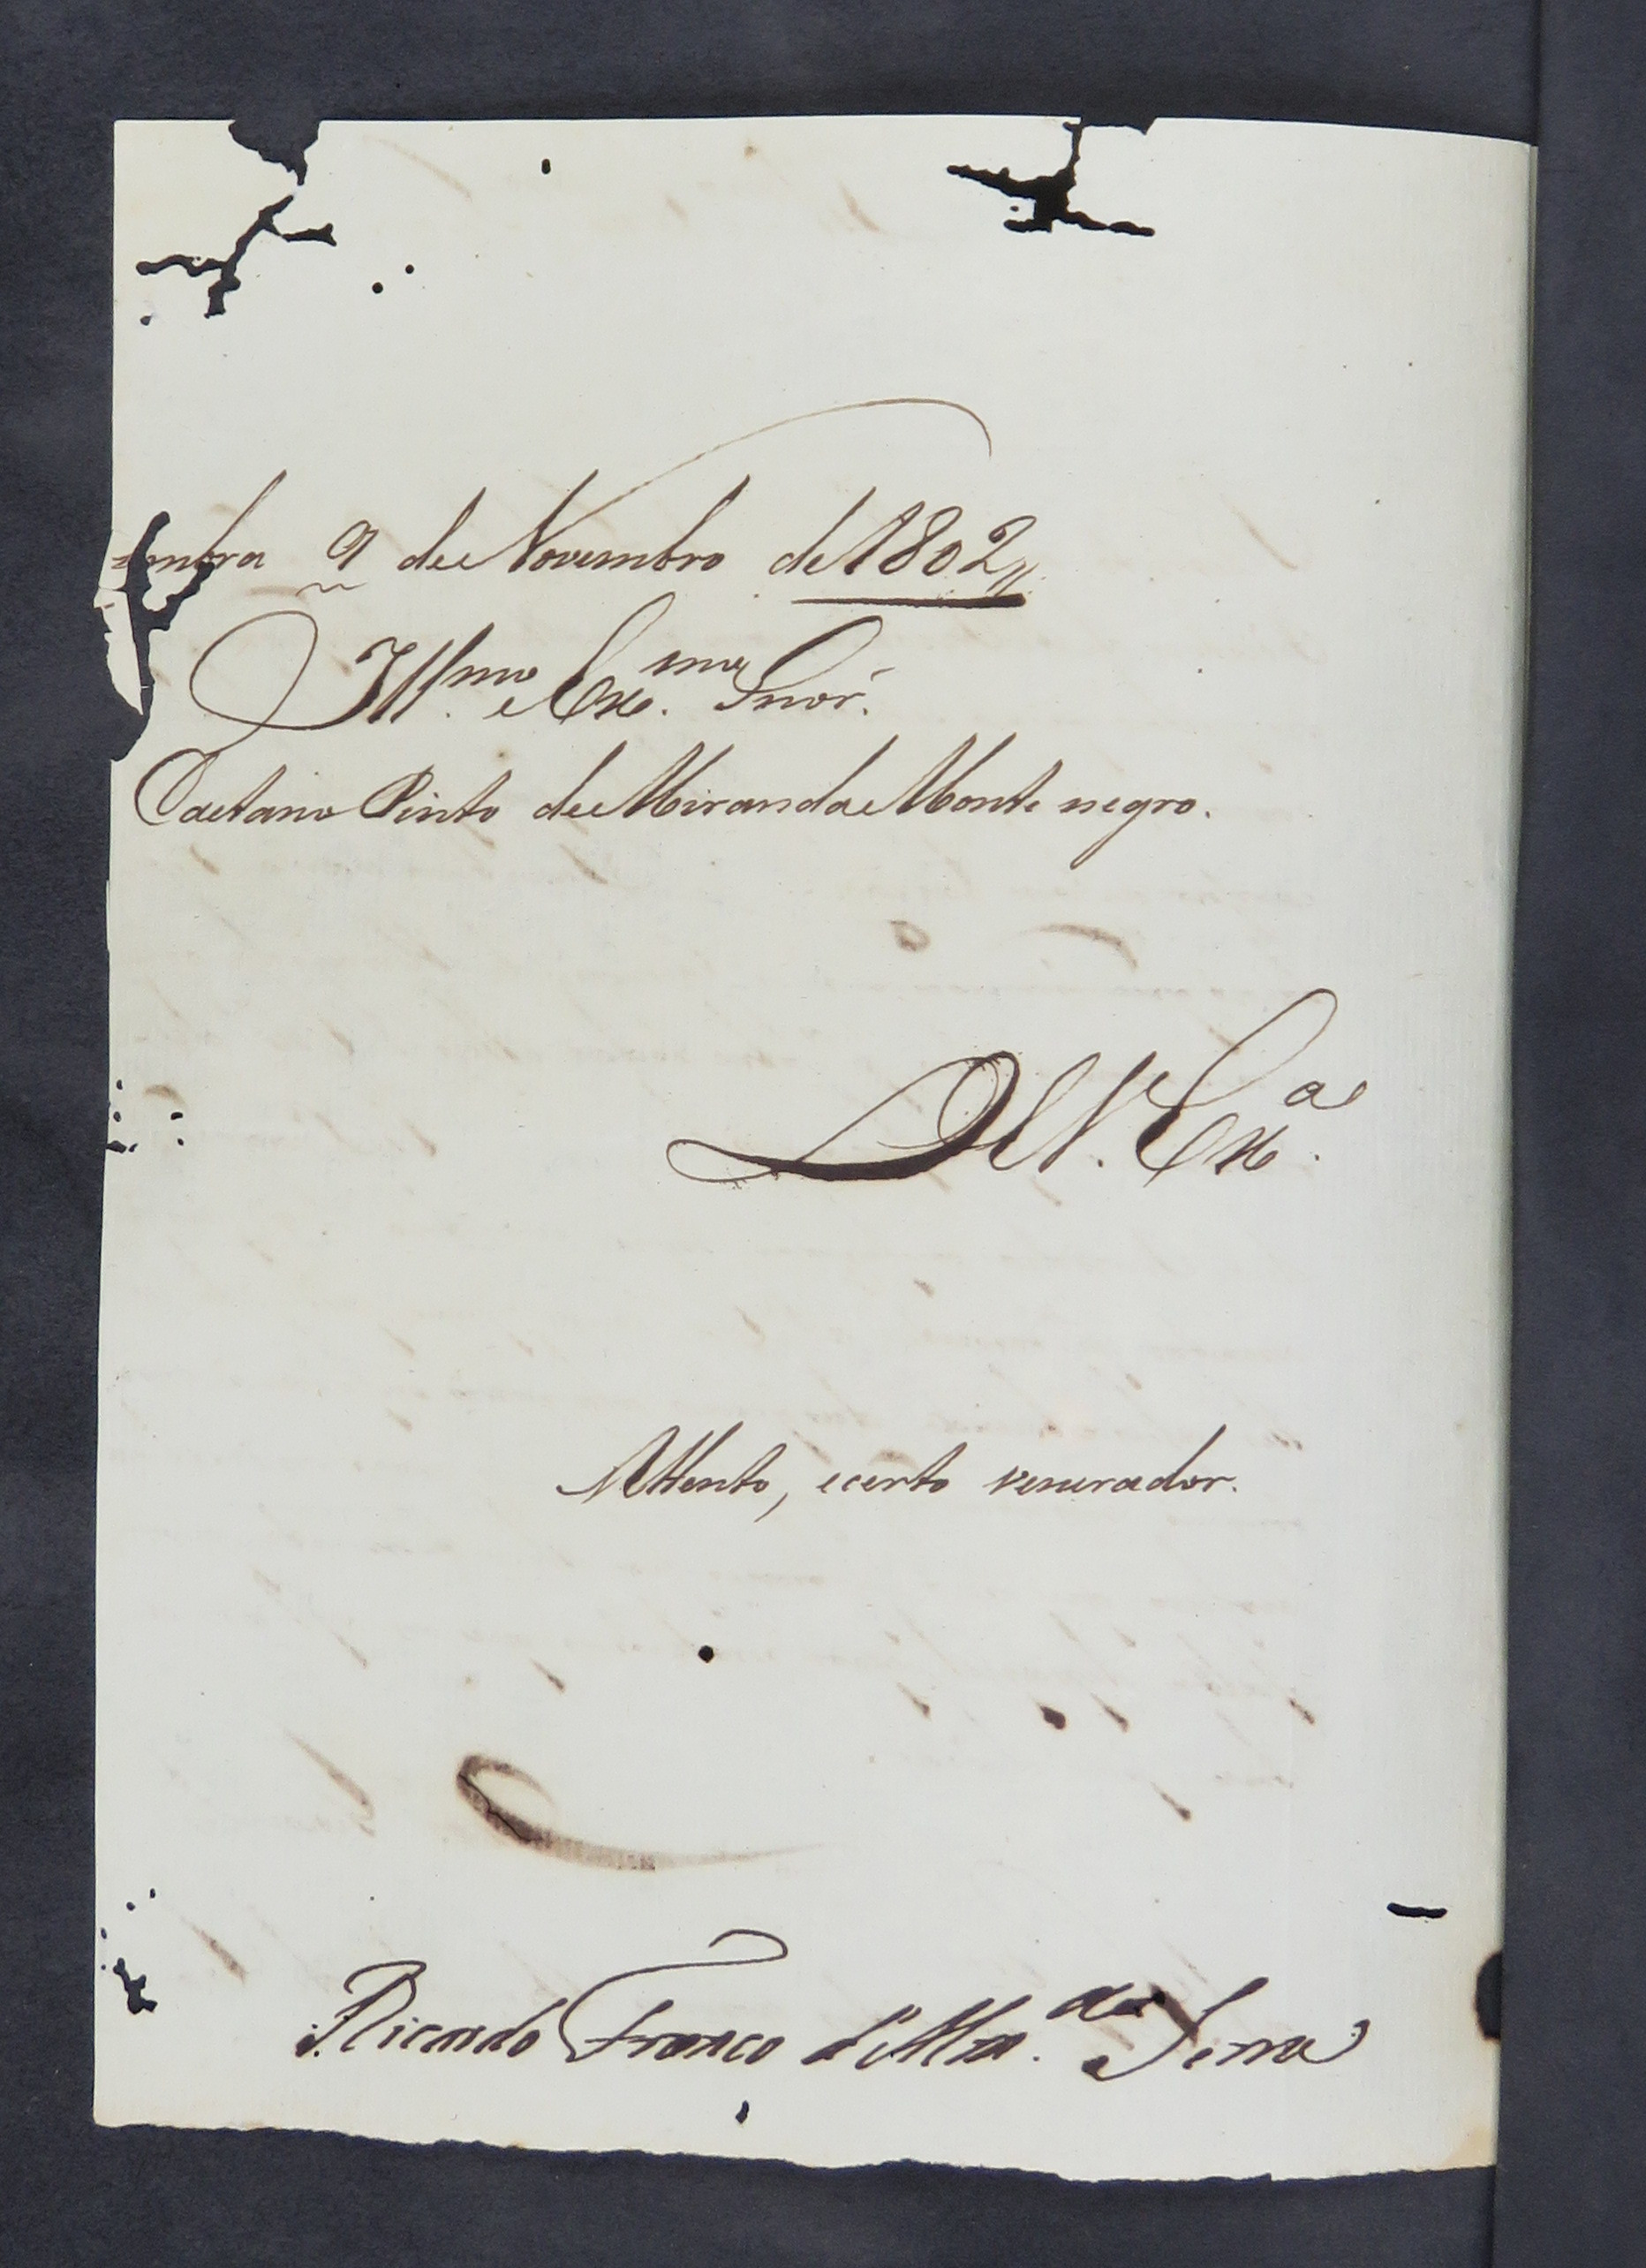 9 de Novembro de 1802//
Illmo. e Exmo. Snor.
Caetano Pinto de Miranda Montenegro.
De V. Exa.
Attento, e certo venerador.
Ricardo Franco d'Almda. e Serra